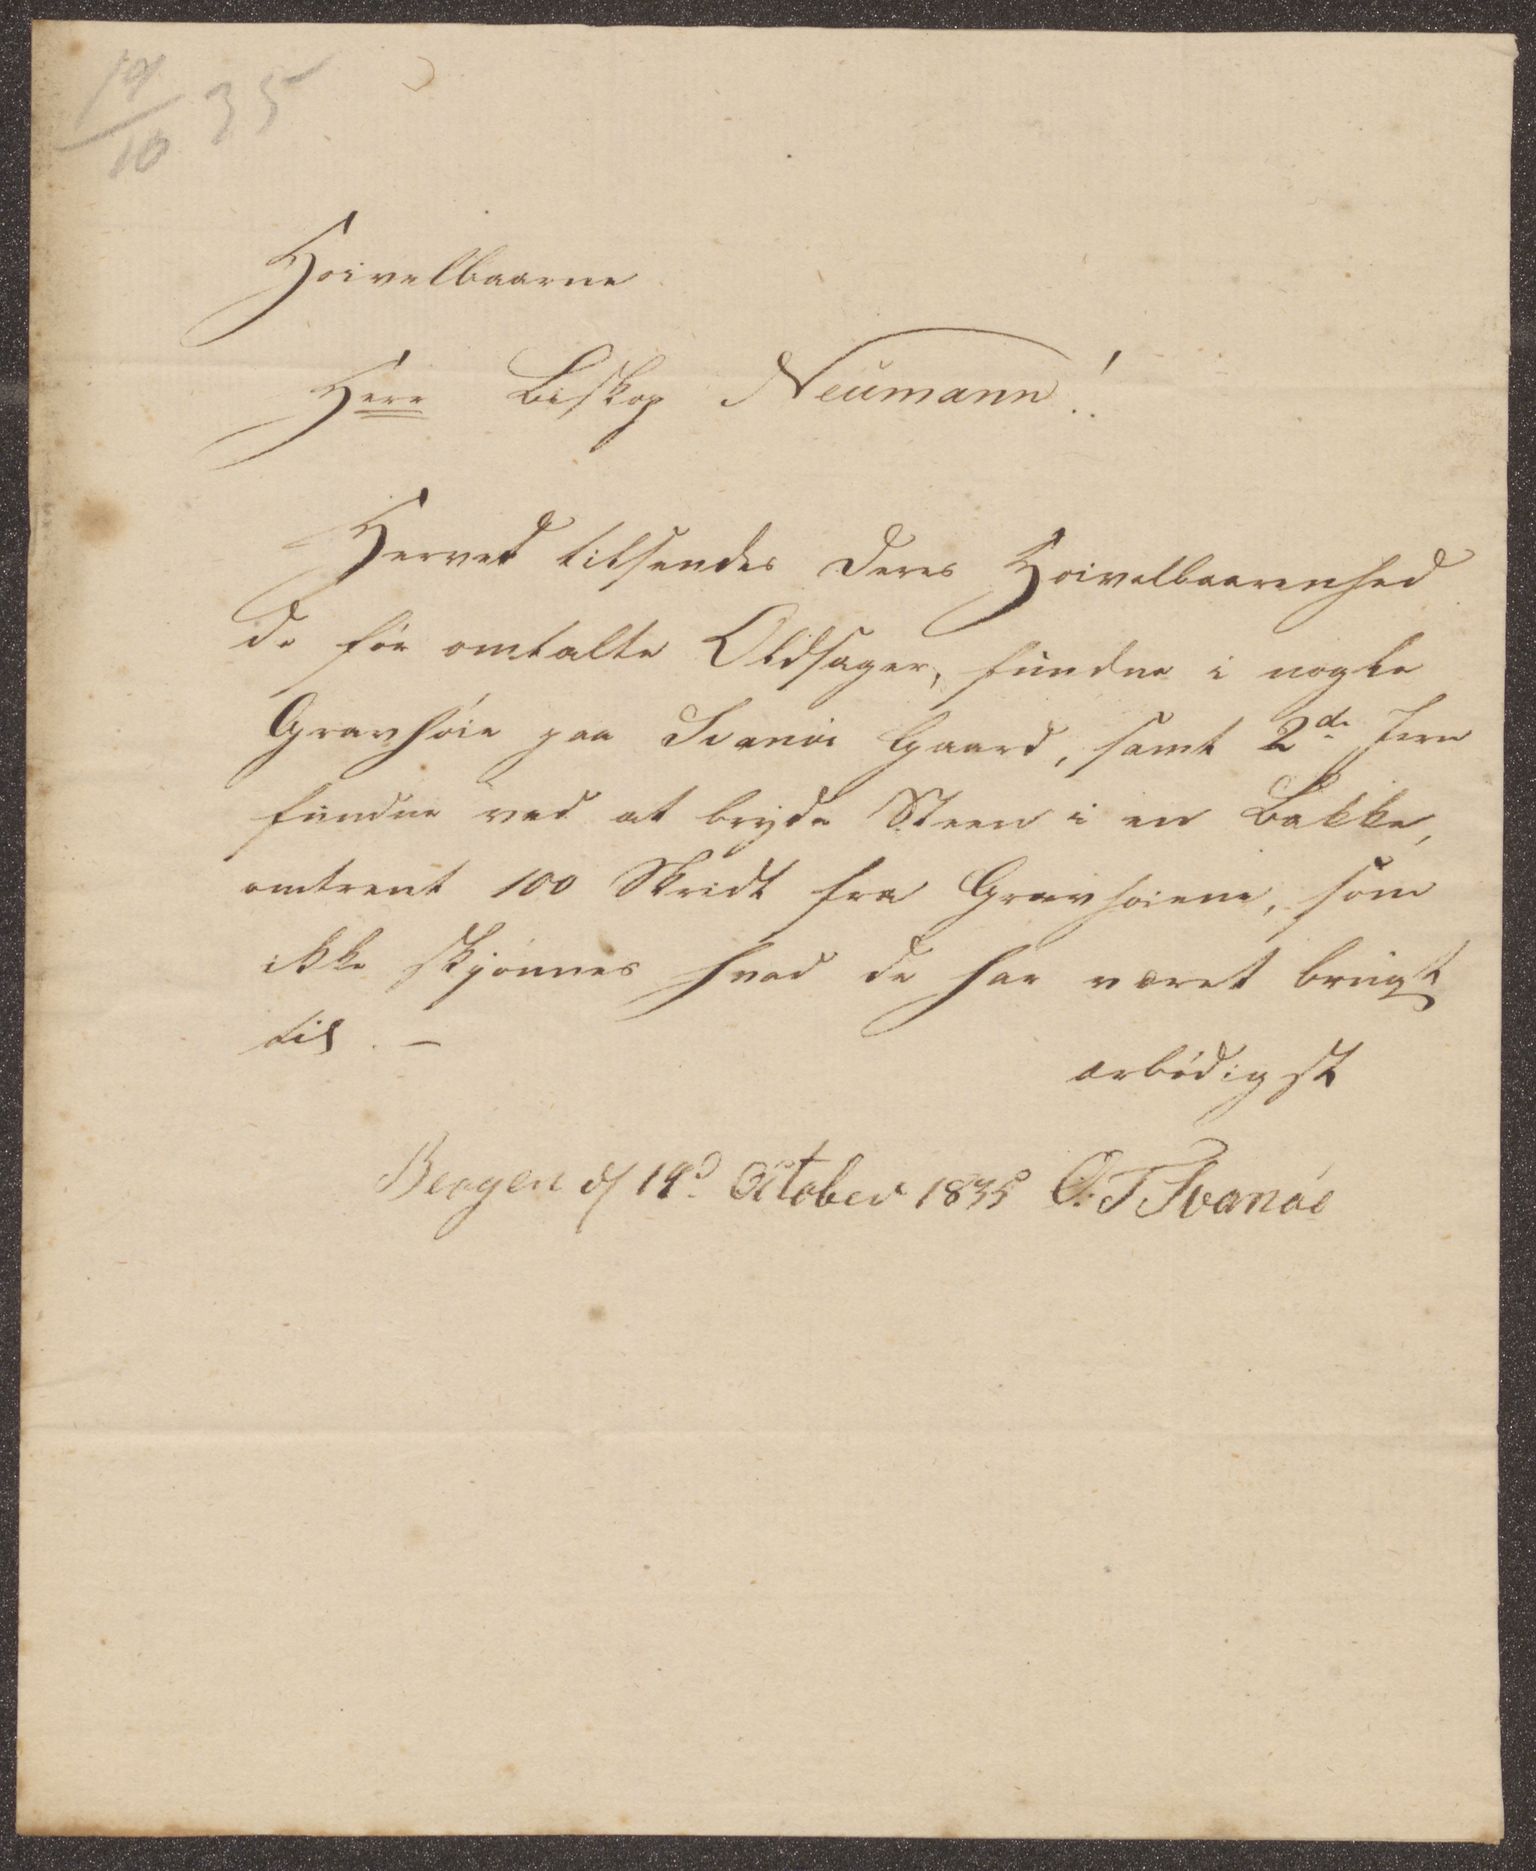 19/10 35
Hoivelbaarne
Herr Biskop Neumann!
Herved tilsendes Deres Hoivelbaarenhed
de för omtalte Oldsager, fundne i nogle
Gravhöie paa Svanöe Gaard, samt 2de Jern
fundne ved at bryde Steen i en Bakke,
omtrent 100 Skridt fra Gravhoiene, som
ikke skjönnes hvad de har været brugt
til. —
ærbödigst
Bergen d 19d October 1835 O. T Svanöe